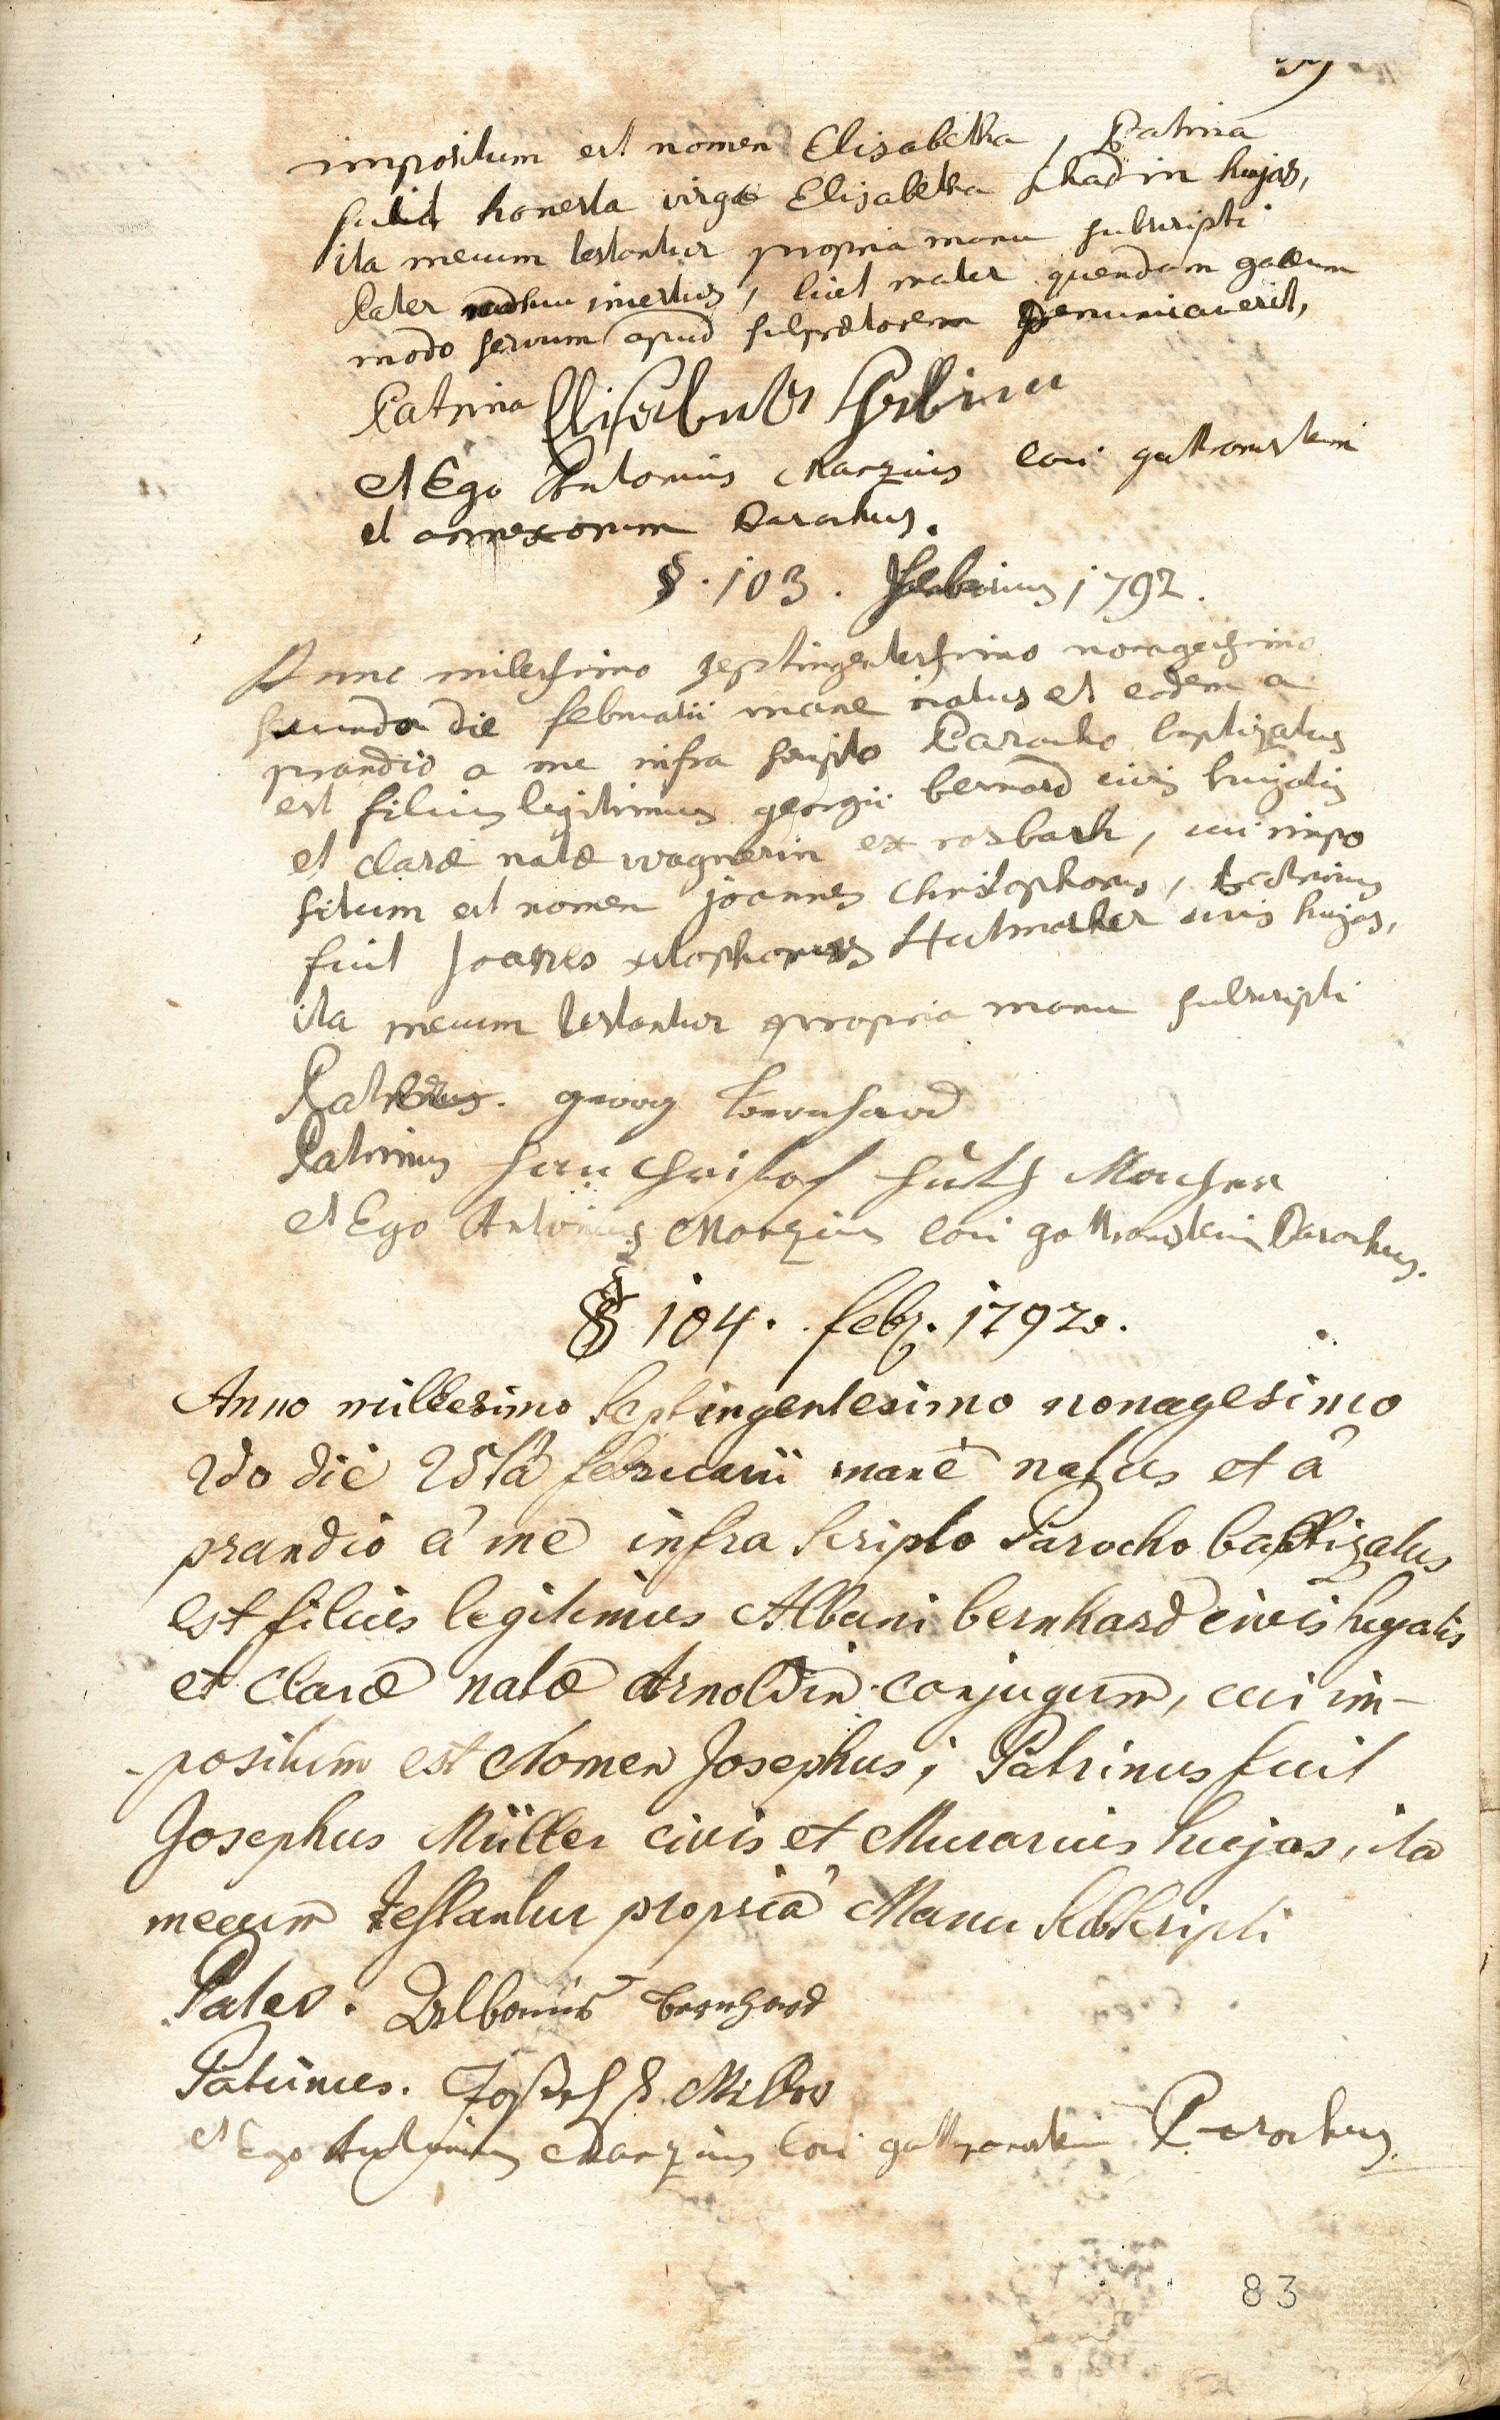 impositum est nomen Elisabetha, Patrina
fuit honesta virgo Elisabetha hujas,
ita mecum testantur propria manu subscripti
Pater incertus, licet mater quendam gallum
modo servum apud denunciaverit,
Patrina Elisabetha
et Ego Antonius Marzius loci
et annexorum Parochus.
§. 103. 1792.
Anno millessimo septingentessimo nonagessimo
secundo die februarii mane natus et eodem a
prandio a me infra scripto Parocho baptizatus
est filius legitimus georgii bernard civis hujatis
et claræ natæ wagnerin ex rosbach, cui impo
situm est nomen joannes christophorus, patrinus
fuit Joanes Hutmacher civis hujas,
ita mecum testantur propria manu subscripti
georg bernhard
Patrinus Christof Huth Macher
et Ego Antonius Marzius loci Parochus.
§ 104. feb. 1792.
Anno millesimo septingentesimo nonagesimo
2do die 25tâ februarii manè natus et â
prandio â me infra scripto Parocho baptizatus
est filius legitimus Albani bernhard civis hujatis
et claræ natæ Arnoldin conjugum, cui im-
-positum est Nomen Josephus, Patrinus fuit
Josephus Müller civis et Murarius hujas, ita
mecum testantur propriâ Manu subscripti
Pater. bernhard
Patrinus. Joseph
et Ego Antonius Marzius loci Parochus.
83